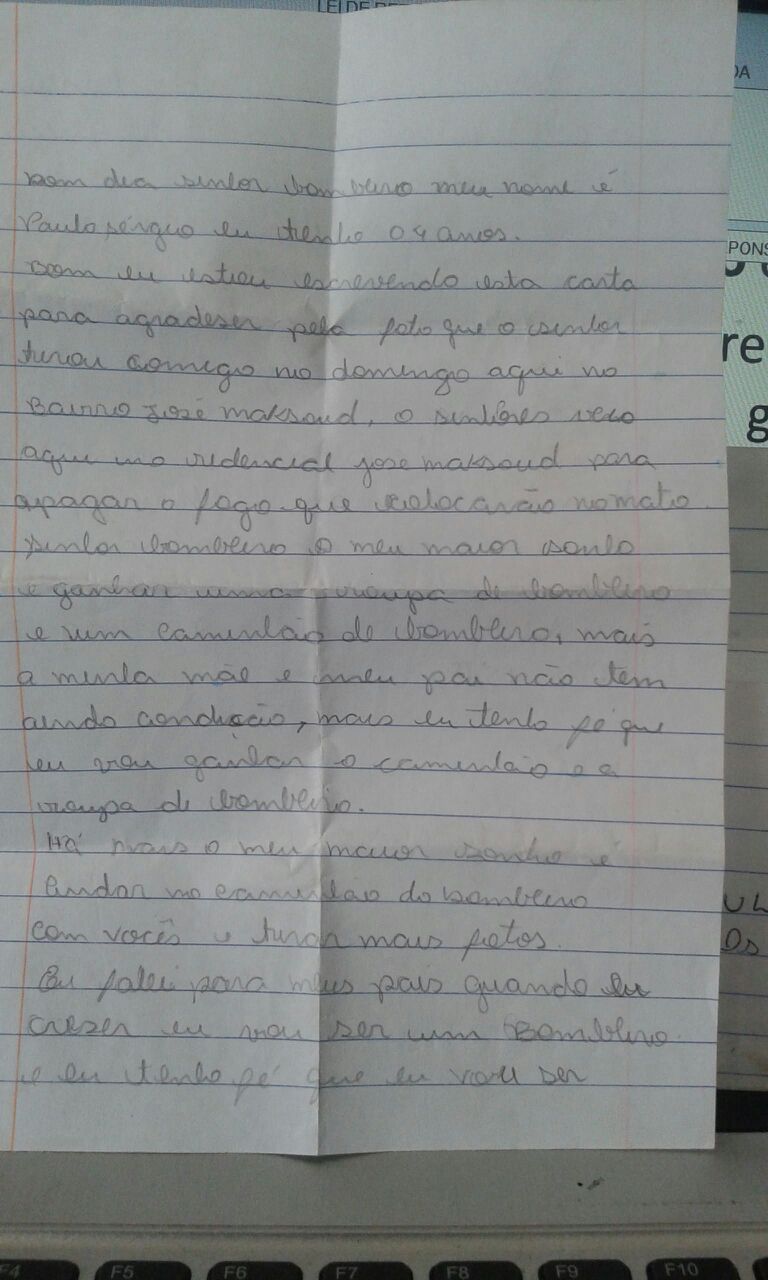 LEI DE
DA
PONS
re
g
bom dia senhor bombeiro meu nome é
Paulo sérgio eu tenho 04 anos.
Bom eu estou escrevendo esta carta
para agradeser pela foto que o senhor
tirou comigo no domingo aqui no
Bairro José maksoud, o senhores veio
aqui no redencial jose maksoud para
apagar o fogo que colocarão no mato
senhor bombeiro o meu maior sonho
e ganhar uma roupa de bombeiro
e um caminhão de bombeiro, mais
a minha mãe e meu pai não tem
aindo condição, mais eu tenho fé que
eu vou ganhar o caminhão e a
roupa de bombeiro.
Há mais o meu maior sonho é
andar no caminhão do bombeiro
com vocês e tirar mais fotos.
Eu falei para meus pais quando eu
creser eu vou ser um Bombeiro
e eu tenho fé que eu vou ser
UL
Os
F4 F5 F6 F7 F8 F9 F10